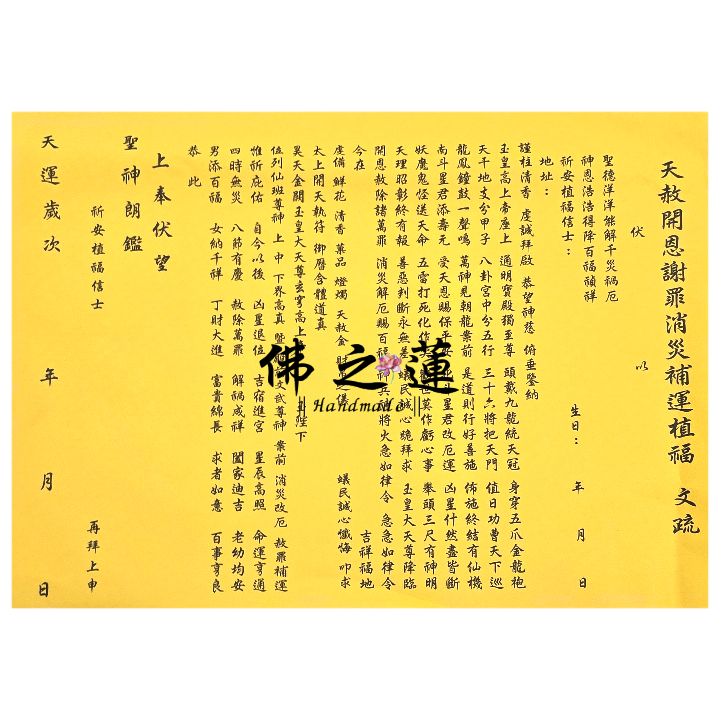 天赦開恩謝罪消災補運植福 文疏
伏 以
聖德洋洋能解千災禍厄
神恩浩浩得降百福禎祥
祈安植福信士： 生日： 年 月 日
地址：
謹炷清香 虔誠拜啟 恭望神慈 俯垂鑒納
玉皇高上帝座上 通明寶殿獨至尊 頭戴九龍統天冠 身穿五爪金龍袍
天干地支分甲子 八卦宮中分五行 三十六將把天門 值日功曹天下巡
龍鳳鐘鼓一聲鳴 萬神見朝龍案前 是道則行好善施 佈施終結有仙機
南斗星君添壽元 受天恩賜保平安 北斗星君改厄運 凶星什然盡皆斷
妖魔鬼怪送天命 五雷打死化作 世莫作虧心事 舉頭三尺有神明
天理昭彰終有報 善惡判斷永無差 蟻民誠心跪拜求 玉皇大天尊降臨
開恩赦除諸萬罪 消災解厄賜百福 神兵 將火急如律令 急急如律令
今在 吉祥福地
虔備 鮮花 清香 菓品 燈燭 天赦金 財 之儀 蟻民誠心懺悔 叩求
太上開天執符 御曆含體道真
昊天金闕玉皇大天尊玄穹高上 陛下
位列仙班尊神 上 中 下界高真 暨 文武尊神 案前 消災改厄 赦罪補運
惟祈庇佑 自今以後 凶星退位 吉宿進宮 星辰高照 命運亨通
四時無災 八節有慶 赦除萬罪 解禍成祥 闔家迪吉 老幼均安
男添百福 女納千祥 丁財大進 富貴綿長 求者如意 百事亨良
恭 此
上奉伏望
聖神朗鑑
祈安植福信士 再拜上申
天運歲次 年 月 日
佛之蓮
Handmade